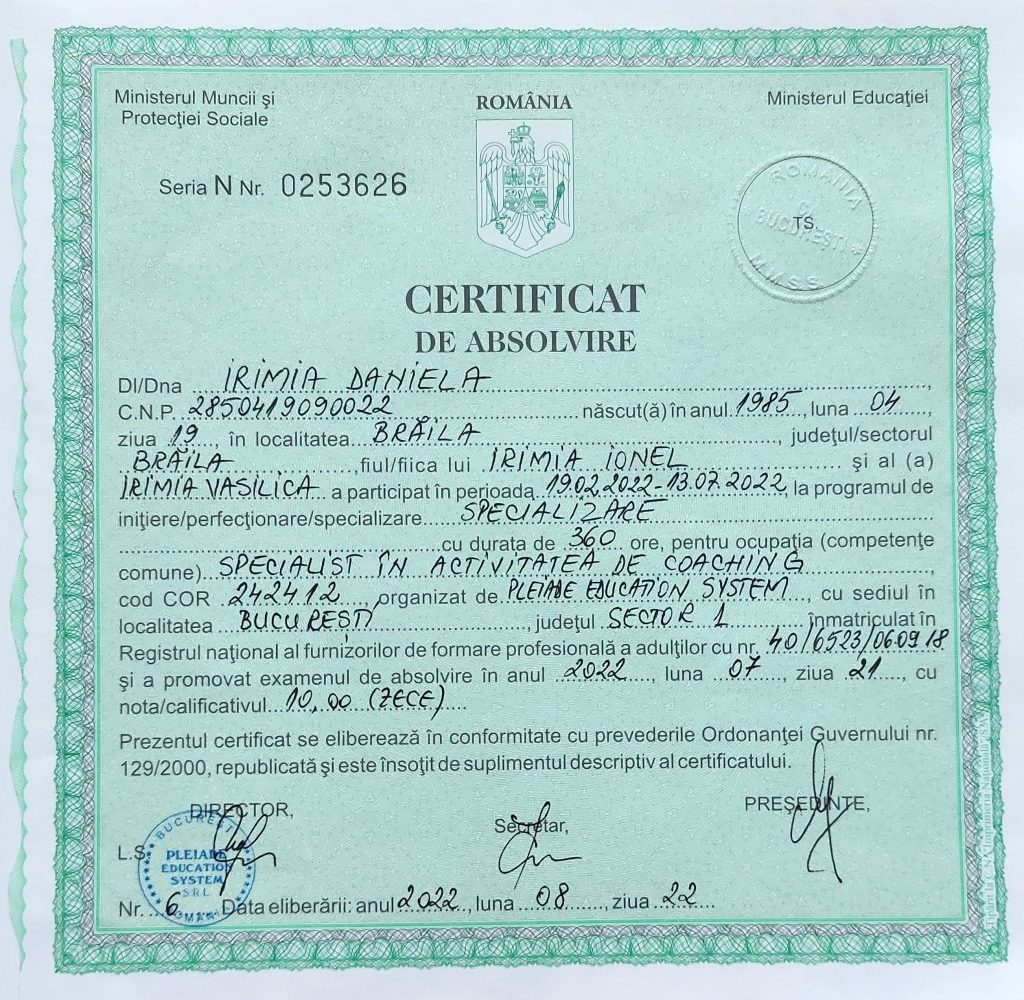 Ministerul Muncii și
Protecției Sociale
ROMÂNIA
Ministerul Educației
Seria N Nr. 0253626
ROMÂNIA
TS
BUCUREȘTI *
M.M.S.S.
CERTIFICAT
DE ABSOLVIRE
Dl/Dna ...IRIMIA DANIELA...,
C.N.P. 2850419090022... născut(ă) în anul 1985.., luna ..04....,
ziua 19..., în localitatea..BRĂILA..., județul/sectorul
BRĂILA...,fiul/fiica lui IRIMIA IONEL... și al (a)
IRIMIA VASILICA.. a participat în perioada 19.02.2022-13.07.2022, la programul de
inițiere/perfecționare/specializare.....SPECIALIZARE...
...cu durata de 360 ore, pentru ocupația (competențe
comune)..SPECIALIST ÎN ACTIVITATEA DE COACHING...,
cod COR .242412..., organizat de PLEIADE EDUCATION SYSTEM..., cu sediul în
localitatea ..BUCUREȘTI..., județul SECTOR 1... înmatriculat în
Registrul național al furnizorilor de formare profesională a adulților cu nr. 40/6523/06.09.18
și a promovat examenul de absolvire în anul ..2022...., luna ..07..., ziua .21...., cu
nota/calificativul...10,00 (ZECE)....
Prezentul certificat se eliberează în conformitate cu prevederile Ordonanței Guvernului nr.
129/2000, republicată și este însoțit de suplimentul descriptiv al certificatului.
DIRECTOR,
Secretar,
PREȘEDINTE,
L.S.
BUCUREȘTI
PLEIADE
EDUCATION
SYSTEM
S.R.L
Nr. ..6.. Data eliberării: anul 2022.., luna ...08......, ziua ..22...